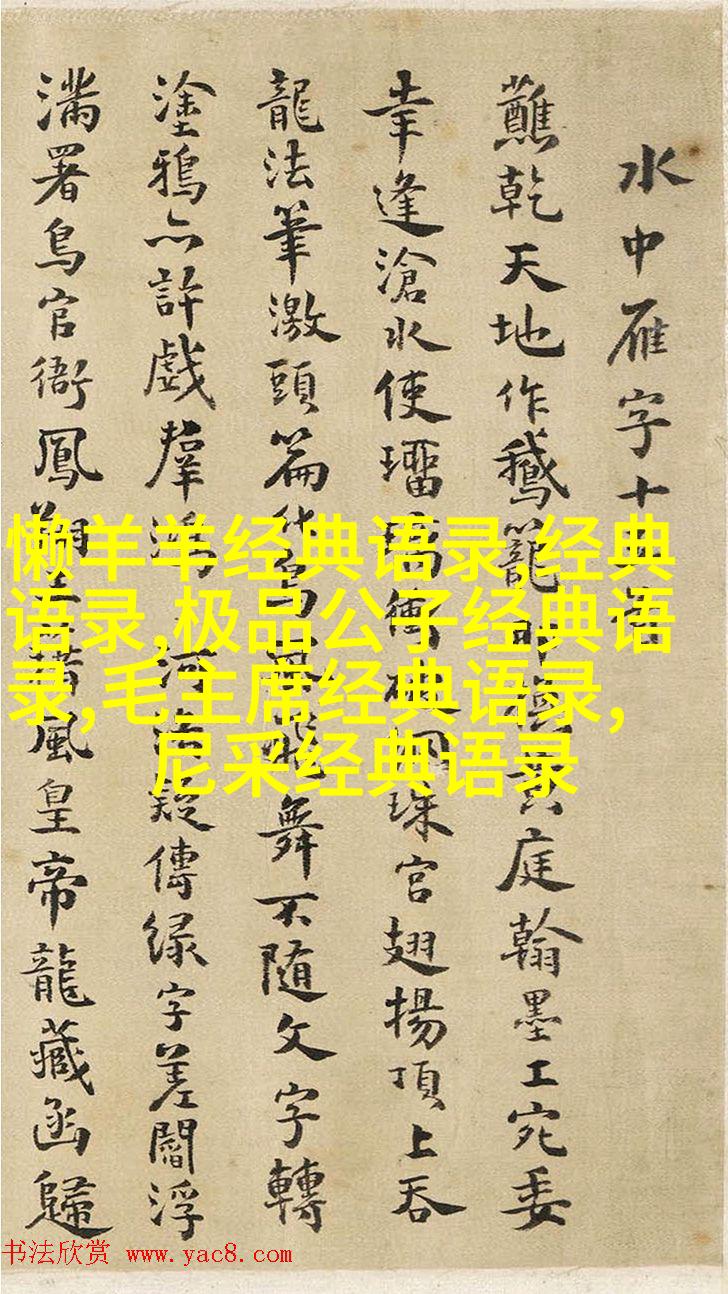 水中雁字十
蘸乾天地作鵝籠
庭翰墨工宛委
幸逢滄水使璢
珠宮翅揚頂上吞
龍法筆激頭篇
舞不随文字轉
塗鴉亦許戲羣鴻
傳緑字差閻浮
滿署鳥官衙鳳
風皇帝龍藏函歸
懒羊羊经典语录,经典
语录,极品公子经典语
录,毛主席经典语录,
尼采经典语录
书法欣赏 www.yac8.com